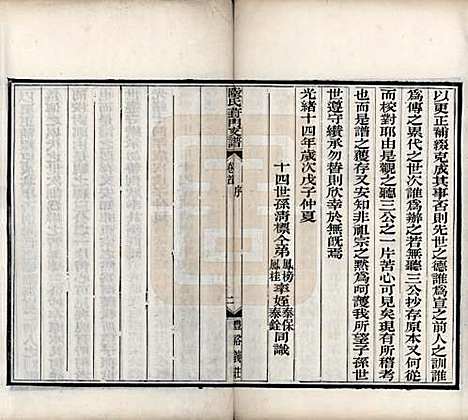 以更正補綴克成其事否則先世之德誰為宣之前人之訓誰
為傳之累代之世次誰為辦之若無聽三公抄存原本又何從
而校對耶由是觀之聽三公之一片苦心可見矣現有所稽考
也而是譜之復存又安知非祖宗之默為呵護我所望子孫世
世遵守纘承勿替則欣幸於無旣焉
光緒十四年歲次戊子仲夏
十四世孫清標仝弟鳳榜鳳桂率姪泰保泰銓同識
陸氏葑門支譜
卷首
序
二
豊裕義莊